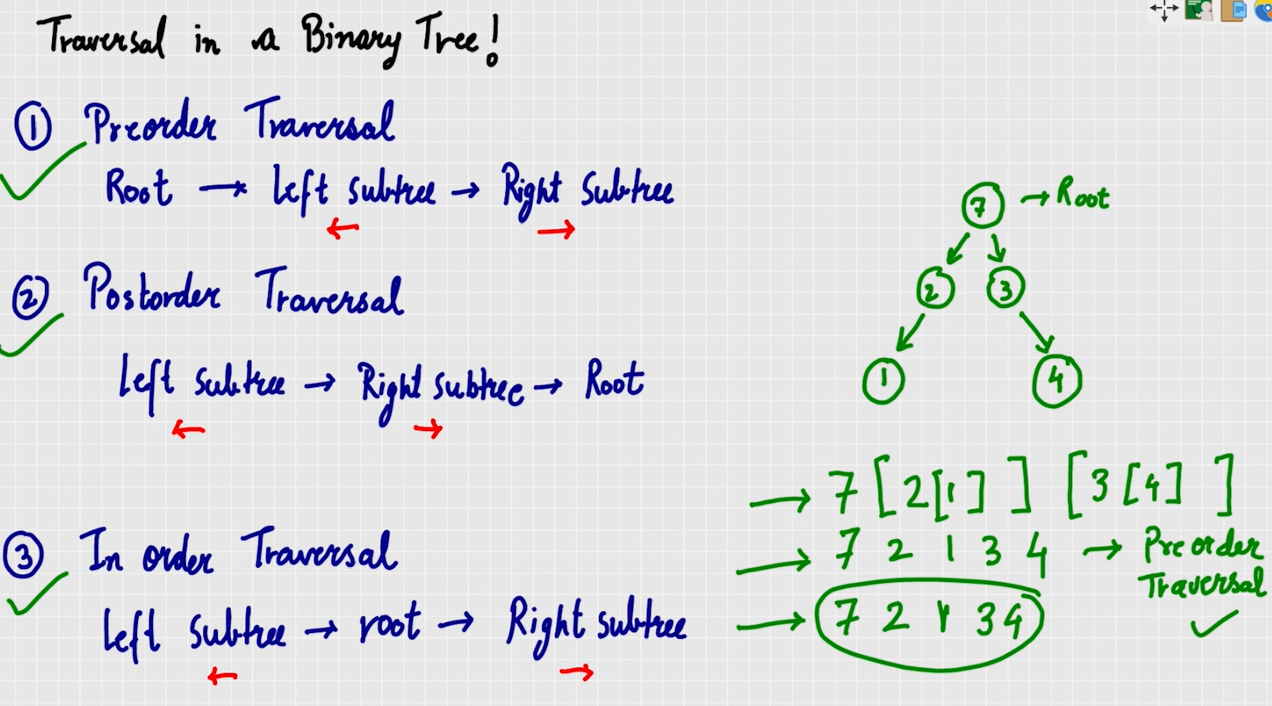 Traversal in a Binary Tree!
① Preorder Traversal
Root → Left subtree → Right Subtree
② Postorder Traversal
Left subtree → Right subtree → Root
③ In order Traversal
Left subtree → root → Right subtree
7 → Root
2 3
1 4
→ 7 [2[1] ] [3[4] ]
→ 7 2 1 3 4 → Preorder
Traversal
→ 7 2 1 3 4